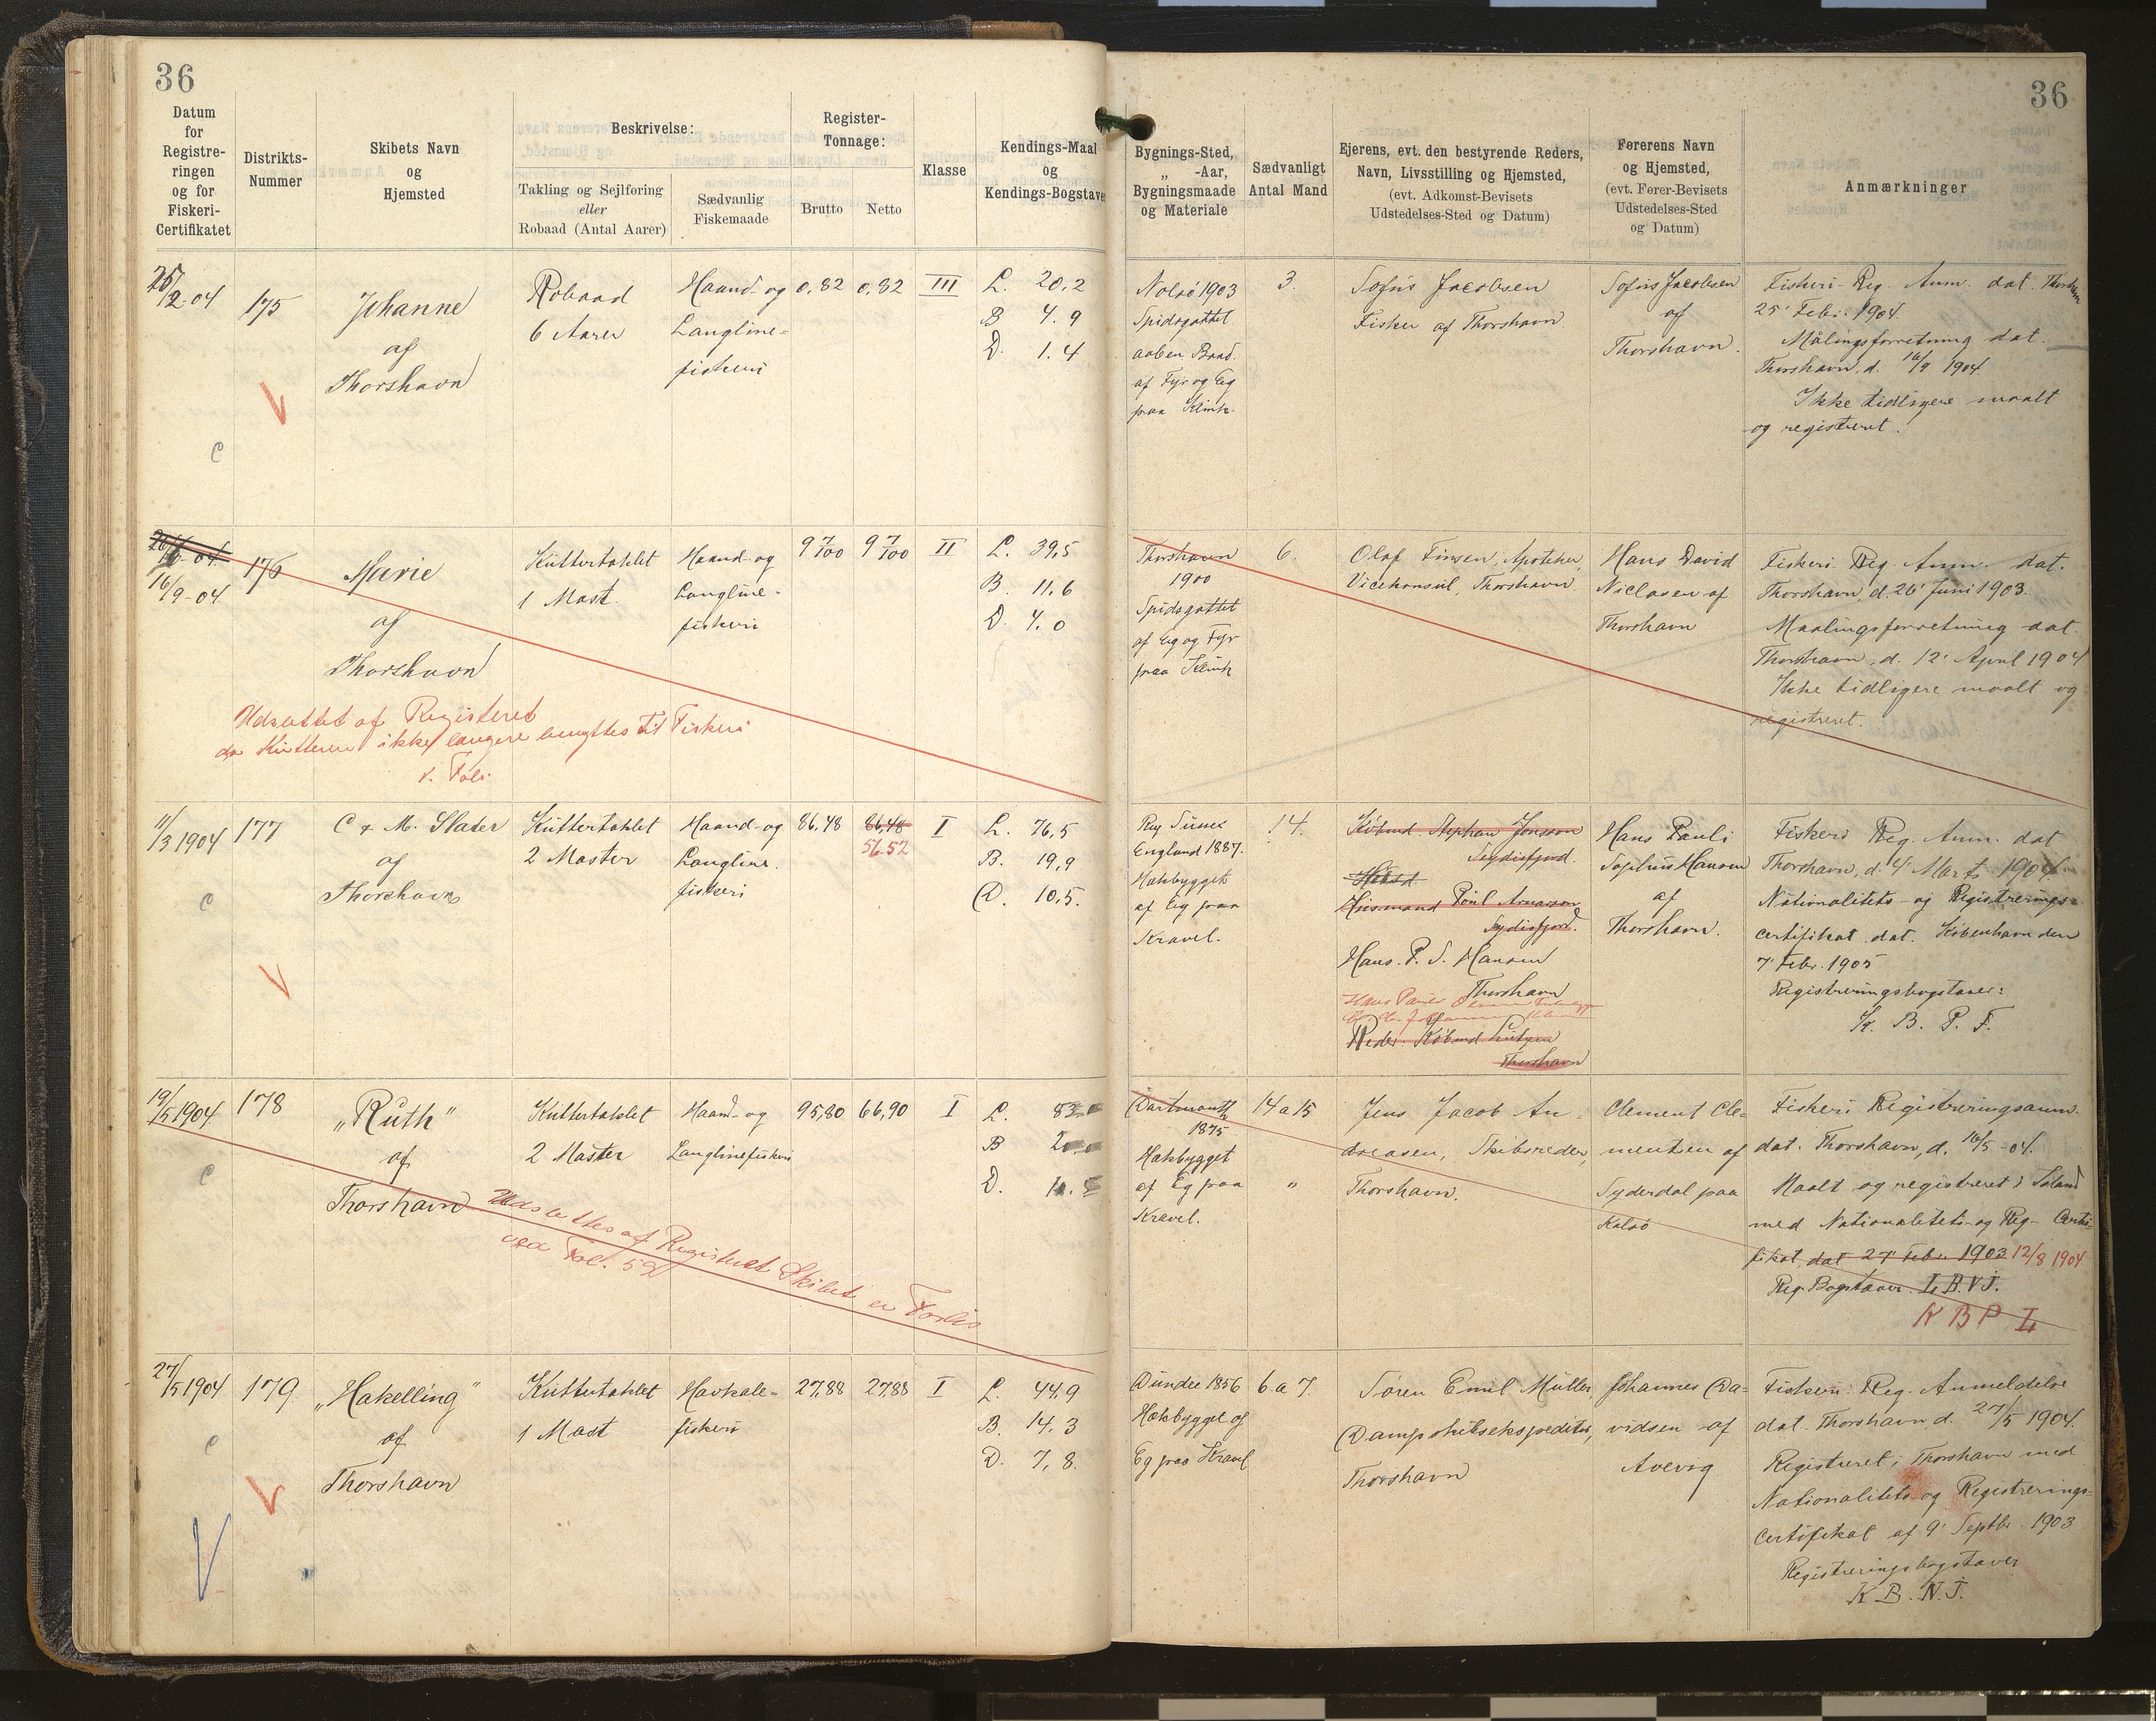 36
36
Datum
for
Registre-
ringen
og for
Fiskeri-
Certifikatet
Distrikts-
Nummer
Skibets Navn
og
Hjemsted
Beskrivelse:
Takling og Sejlføring
eller
Robaad (Antal Aarer)
Sædvanlig
Fiskemaade
Register-
Tonnage:
Brutto
Netto
Klasse
Kendings-Maal
og
Kendings-Bogstaver
Bygnings-Sted,
„ -Aar,
Bygningsmaade
og Materiale
Sædvanligt
Antal Mand
Ejerens, evt. den bestyrende Reders,
Navn, Livsstilling og Hjemsted,
(evt. Adkomst-Bevisets
Udstedelses-Sted og Datum)
Førerens Navn
og Hjemsted,
(evt. Fører-Bevisets
Udstedelses-Sted
og Datum)
Anmærkninger
25/2-04
175
Johanne
af
Thorshavn
Robaad
6 Aarer
Haand- og
Langline-
fiskeri
0,82
0,82
III
L. 20,2
B 4.9
D. 1.4
Nolsø 1903
Spidsgattet
aaben Baad.
af Fyr og Eg
paa Klink.
3.
Sofus Jacobsen
Fisker af Thorshavn
Sofus Jacobsen
af
Thorshavn.
Fiskeri-Reg. Anm. dat. Thorshavn
25' Febr. 1904.
Målingsforretning dat.
Thorshavn, d. 16/9 1904
Ikke tidligere maalt
og registreret.
C
16/9-04
176
Marie
af
Thorshavn
Kuttertaklet
1 Mast.
Haand- og
Langline-
fiskeri
9 7/100
9 7/100
II
L. 39,5
B. 11,6
D. 4.0
Thorshavn
1900
Spidsgattet
af Eg og Fyr
paa Klink
6.
Olaf Finsen, Apotheker,
Vicekonsul, Thorshavn.
Hans David
Niclasen af
Thorshavn
Fiskeri Reg. Anm. dat.
Thorshavn, d. 26' Juni 1903.
Maalingsforretning dat.
Thorshavn, d. 12' April 1904
Ikke tidligere maalt og
registreret.
Udslettet af Registeret
da Kutteren ikke længere benyttes til Fiskeri
11/3 1904
177
C & M. Slater
af
Thorshavn
Kuttertaklet
2 Master
Haand- og
Langline.
fiskeri
86,48
86,48
56.52
I
L. 76,5
B. 19,9
D. 10,5.
Rye Sussex
England 1887.
Hækbygget
af Eg paa
Kravel.
14.
Købmd. Stephan Jonsson
Seydisfjord.
Husmand Poul Arnason
Sydisfjord.
Hans. P. S. Hansen
Thorshavn
Reder: Købmd Lützen
Thorshavn
Hans Pauli
Sophus Hansen
af
Thorshavn.
Fiskeri Reg. Anm. dat
Thorshavn, d. 4' Marts 1904
Nationalitets- og Registrerings-
certifikat dat. København den
7' Febr. 1905
Registreringsbogstaver:
K. B. P. F.
C
19/5 1904
178
„Ruth"
af
Thorshavn
Kuttertaklet
2 Master
Haand- og
Langlinefiskeri
95,80
66,90
I
L.
B
D.
Dartmouth
1875
Hækbygget
af Eg paa
Kravel.
14 a 15
„
Jens Jacob An-
dreasen, Skibsreder,
Thorshavn.
Clement Cle-
mentsen af
Syderdal paa
Kalsø
Fiskeri Registreringsanm.
dat. Thorshavn, d. 16/5-04.
Maalt og registreret i Island
med Nationalitets- og Reg- Certi-
fikat dat 27' Febr 1903 12/8 1904
Reg. Bogstaver L. B. V. J.
K B P L
C
Udslettes af Registeret Skibet er Forlis
27/5 1904
179.
„Hakelling"
af
Thorshavn
Kuttertaklet
1 Mast
Havkale-
fiskeri
27,88
27,88
I
L. 44,9
B. 14,3
D. 7,8.
Dundee 1856
Hækbygget af
Eg paa Kravel
6 a 7.
Søren Emil Müller,
Dampskibsekspeditør,
Thorshavn
Johannes Da-
vidsen af
Avevig
Fiskeri Reg. Anmeldelse
dat. Thorshavn d. 27/5 1904.
Registreret i Thorshavn med
Nationalitets- og Registrerings-
certifikat af 9' Septbr. 1903
Registreringsbogstaver
K B. N. J.
C